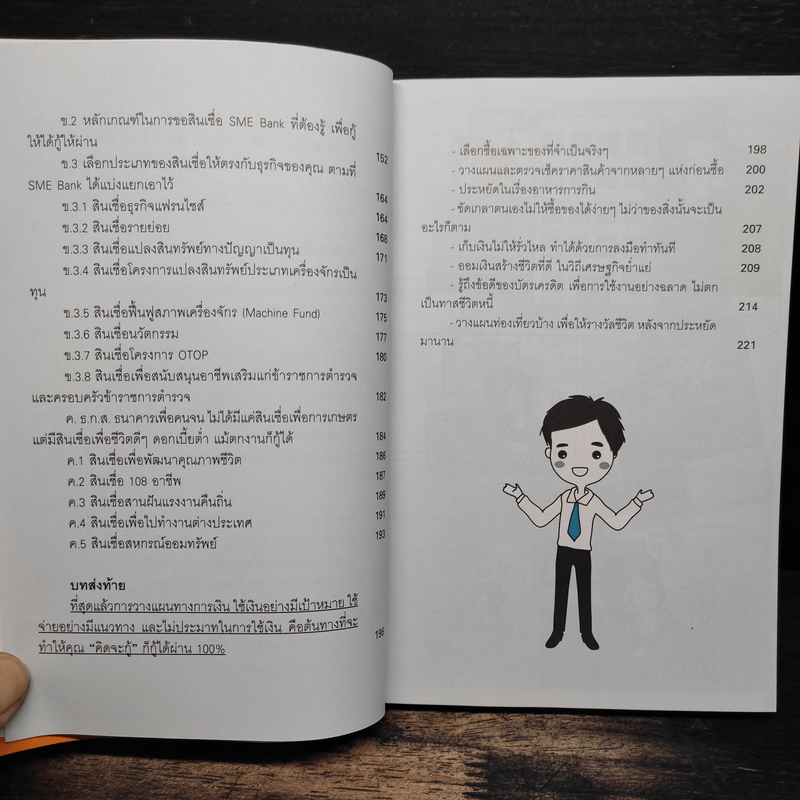 ข.2 หลักเกณฑ์ในการขอสินเชื่อ SME Bank ที่ต้องรู้ เพื่อกู้
ให้ได้กู้ให้ผ่าน 152
ข.3 เลือกประเภทของสินเชื่อให้ตรงกับธุรกิจของคุณ ตามที่
SME Bank ได้แบ่งแยกเอาไว้ 164
ข.3.1 สินเชื่อธุรกิจแฟรนไชส์ 164
ข.3.2 สินเชื่อรายย่อย 168
ข.3.3 สินเชื่อแปลงสินทรัพย์ทางปัญญาเป็นทุน 171
ข.3.4 สินเชื่อโครงการแปลงสินทรัพย์ประเภทเครื่องจักรเป็น
ทุน 173
ข.3.5 สินเชื่อฟื้นฟูสภาพเครื่องจักร (Machine Fund) 175
ข.3.6 สินเชื่อนวัตกรรม 177
ข.3.7 สินเชื่อโครงการ OTOP 180
ข.3.8 สินเชื่อเพื่อสนับสนุนอาชีพเสริมแก่ข้าราชการตำรวจ
และครอบครัวข้าราชการตำรวจ 182
ค. ธ.ก.ส. ธนาคารเพื่อคนจน ไม่ได้มีแค่สินเชื่อเพื่อการเกษตร
แต่มีสินเชื่อเพื่อชีวิตดีๆ ดอกเบี้ยต่ำ แม้ตกงานก็กู้ได้ 184
ค.1 สินเชื่อเพื่อพัฒนาคุณภาพชีวิต 186
ค.2 สินเชื่อ 108 อาชีพ 187
ค.3 สินเชื่อสานฝันแรงงานคืนถิ่น 189
ค.4 สินเชื่อเพื่อไปทำงานต่างประเทศ 191
ค.5 สินเชื่อสหกรณ์ออมทรัพย์ 193
บทส่งท้าย
ที่สุดแล้วการวางแผนทางการเงิน ใช้เงินอย่างมีเป้าหมาย ใช้
จ่ายอย่างมีแนวทาง และไม่ประมาทในการใช้เงิน คือต้นทางที่จะ
ทำให้คุณ “คิดจะกู้” ก็กู้ได้ผ่าน 100% 196
- เลือกซื้อเฉพาะของที่จำเป็นจริงๆ 198
- วางแผนและตรวจเช็คราคาสินค้าจากหลายๆ แห่งก่อนซื้อ 200
- ประหยัดในเรื่องอาหารการกิน 202
- ขัดเกลาตนเองไม่ให้ซื้อของได้ง่ายๆ ไม่ว่าของสิ่งนั้นจะเป็น
อะไรก็ตาม 207
- เก็บเงินไม่ให้รั่วไหล ทำได้ด้วยการลงมือทำทันที 208
- ออมเงินสร้างชีวิตที่ดี ในวิถีเศรษฐกิจย่ำแย่ 209
- รู้ถึงข้อดีของบัตรเครดิต เพื่อการใช้งานอย่างฉลาด ไม่ตก
เป็นทาสชีวิตหนี้ 214
- วางแผนท่องเที่ยวบ้าง เพื่อให้รางวัลชีวิต หลังจากประหยัด
มานาน 221